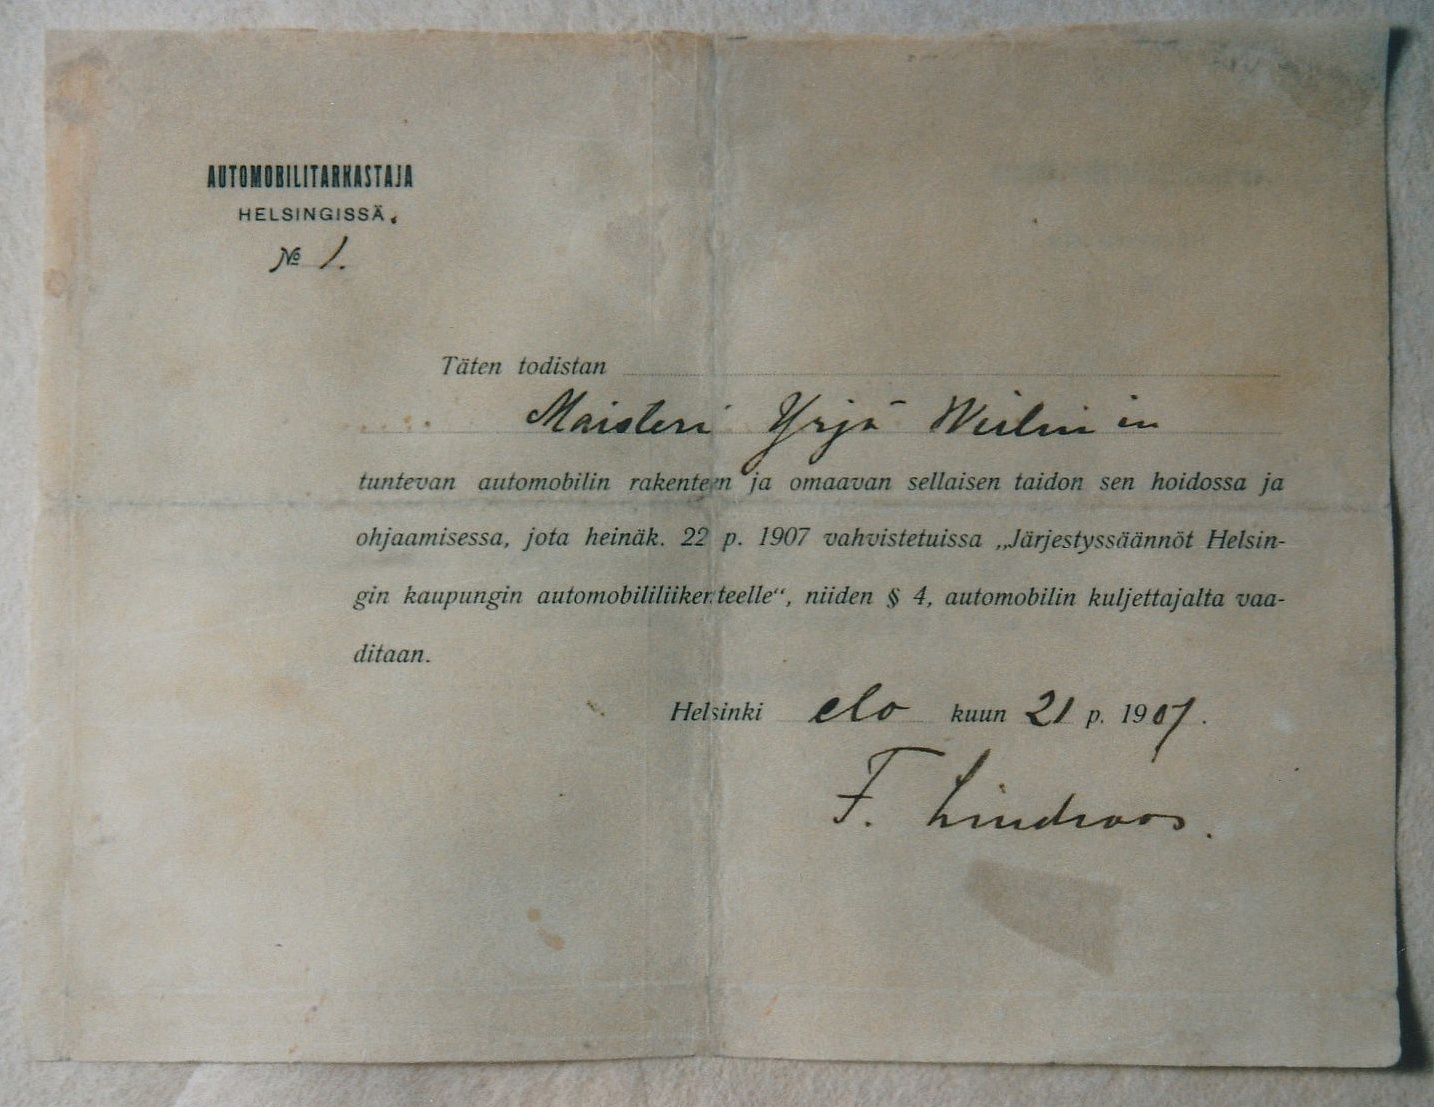 AUTOMOBILITARKASTAJA
HELSINGISSÄ.
№ 1.
Täten todistan
Maisteri Yrjö Weilin in
tuntevan automobilin rakenteen ja omaavan sellaisen taidon sen hoidossa ja
ohjaamisessa, jota heinäk. 22 p. 1907 vahvistetuissa „Järjestyssäännöt Helsin-
gin kaupungin automobililiikenteelle“, niiden § 4, automobilin kuljettajalta vaa-
ditaan.
Helsinki elo kuun 21 p. 1907.
F. Lindroos.